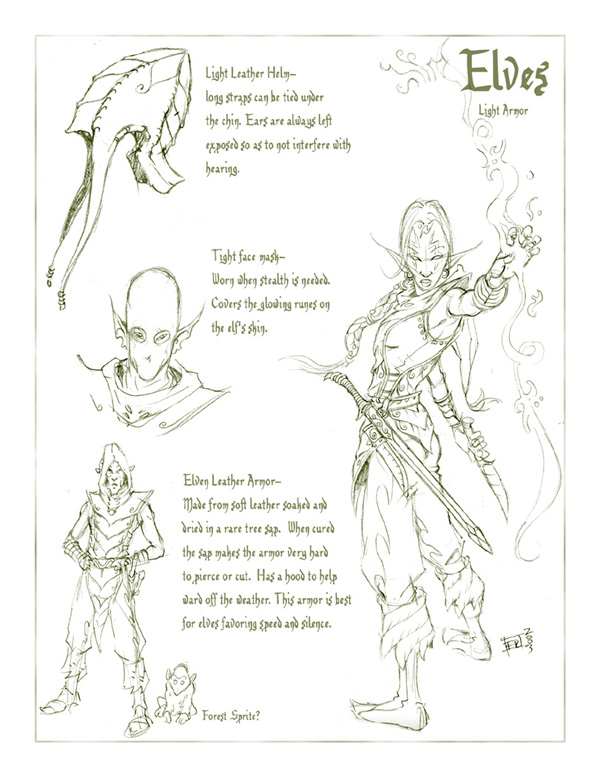 Elves
Light Armor
Light Leather Helm-
long straps can be tied under
the chin. Ears are always left
exposed so as to not interfere with
hearing.
Tight face mask-
Worn when stealth is needed.
Covers the glowing runes on
the elf's skin.
Elven Leather Armor-
Made from soft leather soaked and
dried in a rare tree sap. When cured
the sap makes the armor very hard
to pierce or cut. Has a hood to help
ward off the weather. This armor is best
for elves favoring speed and silence.
Forest Sprite?